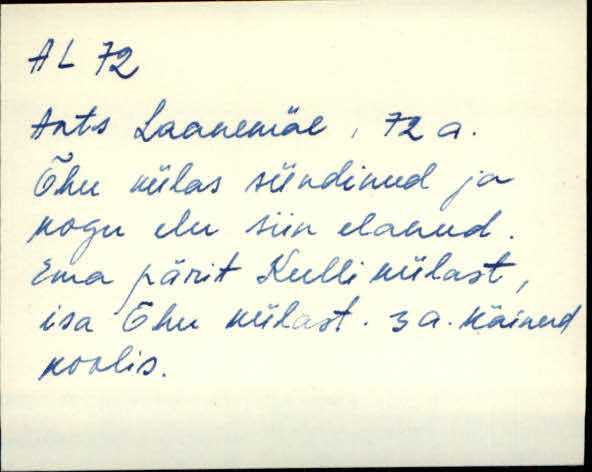 AL 72
Ants Laanemäe, 72 a.
Õhu külas sündinud ja
kogu elu siin elanud.
Ema pärit Kulli külast,
isa Õhu külast. 3 a. käinud
koolis.